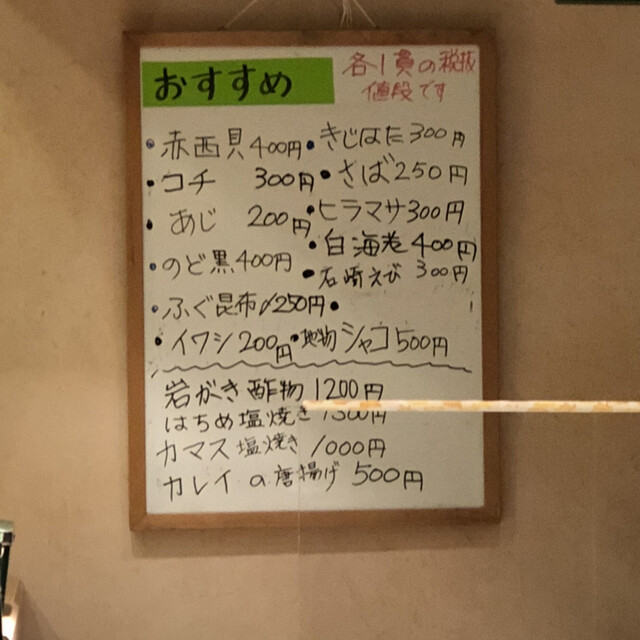 おすすめ
各1貫の税抜
値段です
・赤西貝400円
・コチ 300円
・あじ 200円
・のど黒400円
・ふぐ昆布〆250円
・イワシ200円
・きじはた300円
・さば250円
・ヒラマサ300円
・白海老400円
・石崎えび 300円
・
・地物シャコ500円
岩がき酢物1200円
はちめ塩焼き 1300円
カマス塩焼き 1000円
カレイの唐揚げ 500円